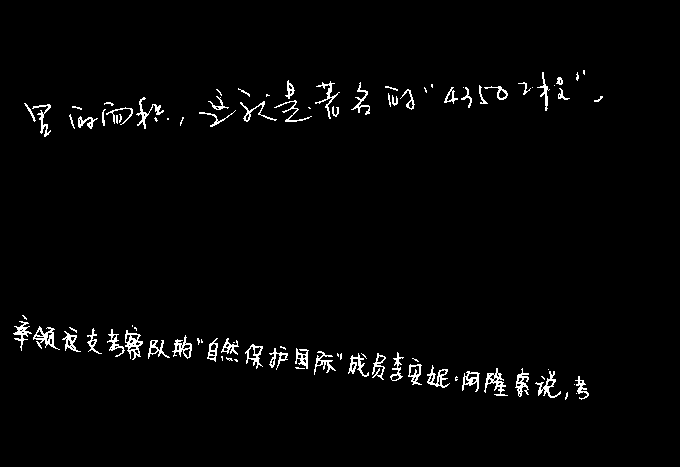 里的面积,这就是著名的“4350工程”。
率领这支考察队的“自然保护国际”成员李安妮·阿隆索说,考